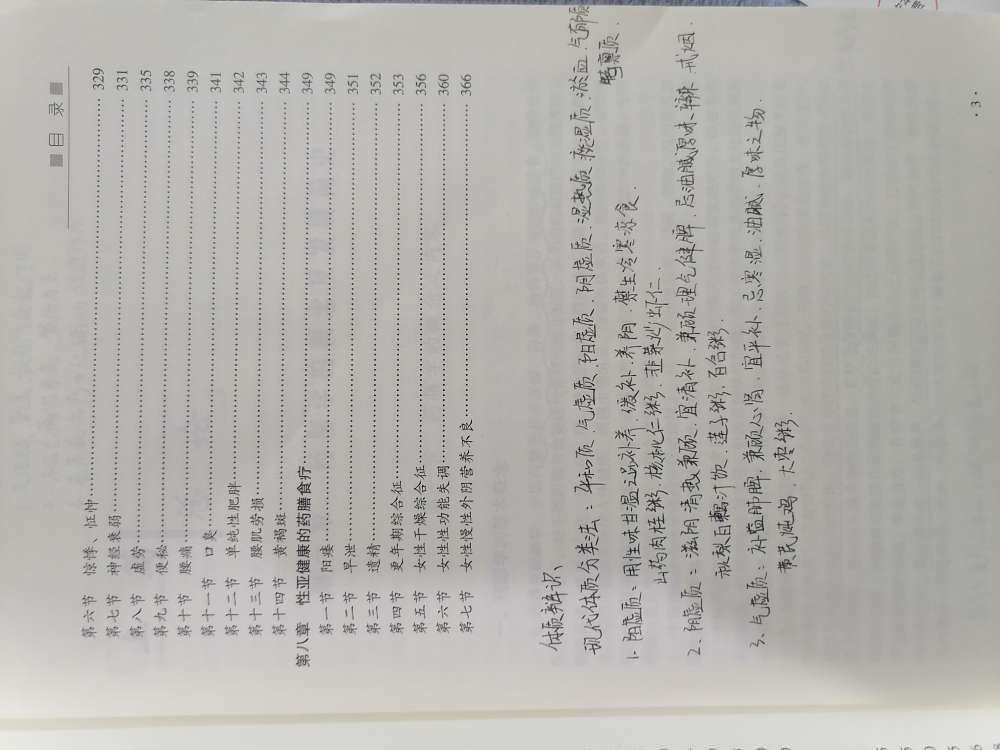 目 录
第六节 惊悸、怔忡 329
第七节 神经衰弱 331
第八节 虚劳 335
第九节 便秘 338
第十节 腰痛 339
第十一节 口臭 341
第十二节 单纯性肥胖 342
第十三节 腰肌劳损 343
第十四节 黄褐斑 344
第八章 性亚健康的药膳食疗 349
第一节 阳痿 349
第二节 早泄 351
第三节 遗精 352
第四节 更年期综合征 353
第五节 女性干燥综合征 356
第六节 女性性功能失调 360
第七节 女性慢性外阴营养不良 366
体质辨识、
现代体质分类法：平和质、气虚质、阳虚质、阴虚质、湿热质、痰湿质、淤血、气郁质
特禀质.
1. 阳虚质：用性味甘温之品补养、缓补、养阴、禁生冷寒凉食.
山药肉桂粥、核桃仁粥、韭菜炒虾仁.
2、阴虚质：滋阴清热兼顾、宜清补、兼顾理气健脾、忌油腻厚味、辛辣、戒烟.
秋梨白藕汁饮、莲子粥、百合粥.
3、气虚质：补益肺脾、兼顾心肾、宜平补、忌寒湿、油腻、厚味之物.
黄芪炖鸡、大枣粥.
· 3 ·